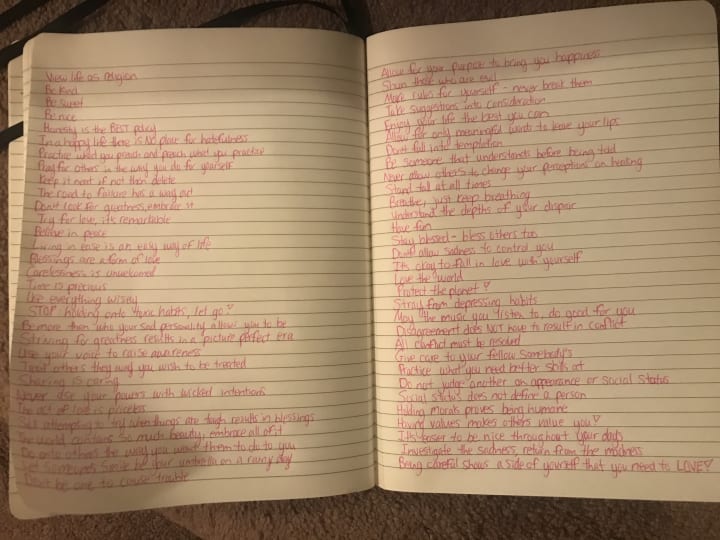 View life as religion
Be kind
Be sweet
Be nice
Honesty is the BEST policy
In a happy life there is NO place for hatefulness
Practice what you preach and preach what you practice
Pray for others in the way you do for yourself
Keep it neat if not then delete
The road to failure has a way out
Don't look for greatness, embrace it
Try for love, it's remarkable
Believe in peace
Living in ease is an easy way of life
Blessings are a form of love
Carelessness is unwelcomed
Time is precious
Use everything wisely
STOP holding onto toxic habits, let go!
Be more than who your sad personality allows you to be
Striving for greatness results in a picture perfect era
Use your voice to raise awareness
Treat others they way you wish to be treated
Sharing is caring
Never use your powers with wicked intentions
The act of love is priceless
Still attempting to try when things are tough results in blessings
The world contains so much beauty, embrace all of it
Do onto others the way you want them to do to you
Let someones smile be your umbrella on a rainy day
Don't be one to cause trouble
Allow for your purpose to bring you happiness
Shun those who are evil
Make rules for yourself - never break them
Take suggestions into consideration
Enjoy your life the best you can
Allow for only meaningful words to leave your lips
Don't fall into temptation
Be someone that understands before being told
Never allow others to change your perceptions on healing
Stand tall at all times
Breathe, just keep breathing
Understand the depths of your despair
Have fun
Stay blessed - bless others too
Don't allow sadness to control you
It's okay to fall in love with yourself
Love the world
Protect the planet!
Stray from depressing habits
May the music you listen to, do good for you
Disagreement does NOT have to result in conflict
All conflict must be resolved
Give care to your fellow somebody's
Practice what you need better skills at
Do not judge another on appearance or social status
Social status does not define a person
Holding morals proves being humane
Having values makes others value you!
It's easier to be nice throughout your days
Investigate the sadness, return from the madness
Being careful shows a side of yourself that you need to LOVE!